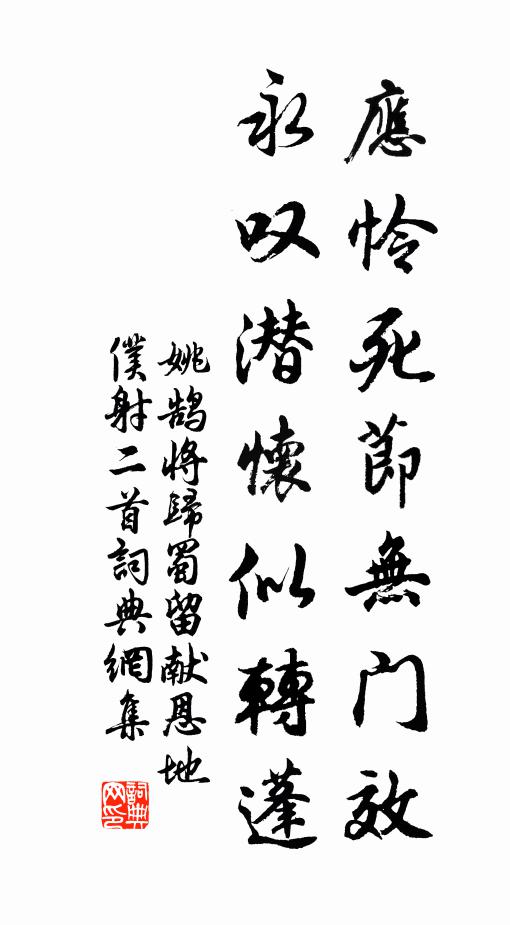 應怜死節無门效
永叹潜懷似轉蓬
姚鹄将歸蜀留献恩地
僕射二首詞典網集
詞典网印